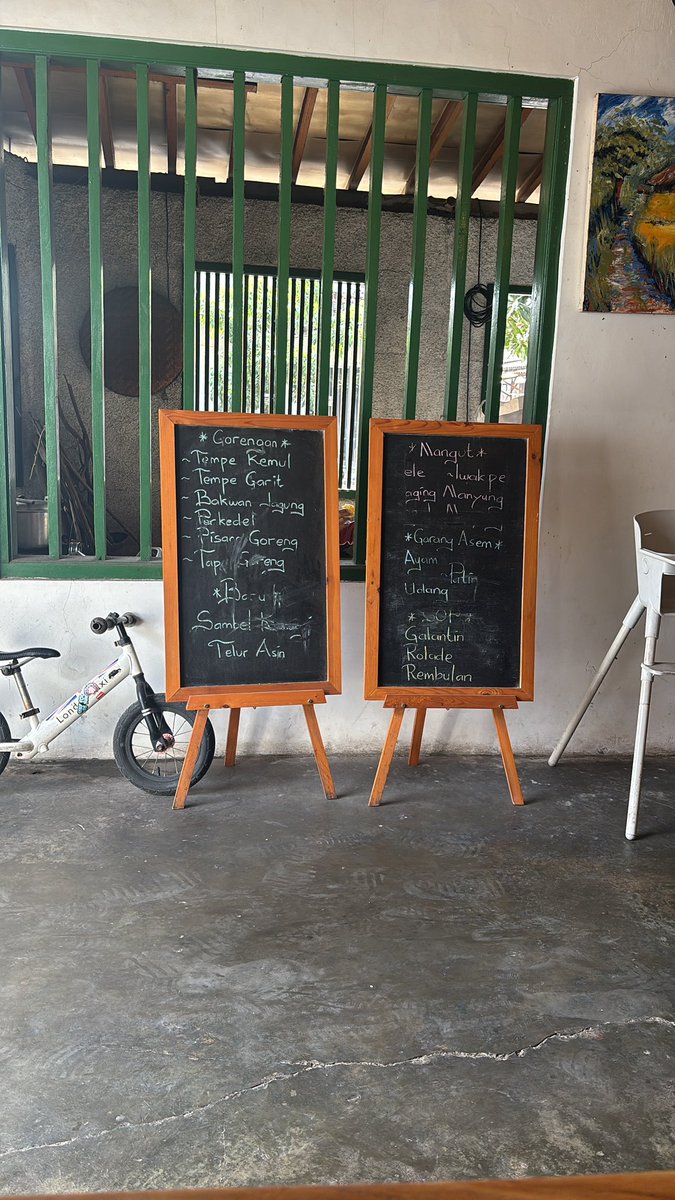 *Gorengan*
~Tempe Kemul
~Tempe Garit
~Bakwan Jagung
~Perkedel
~Pisang Goreng
~Tape Goreng
Sambel
Telur Asin
*Mangut*
ele ~Iwak pe
aging Manyung
*Garang Asem*
Ayam Patin
Udang
Galantin
Rolade
Rembulan
Lond xi